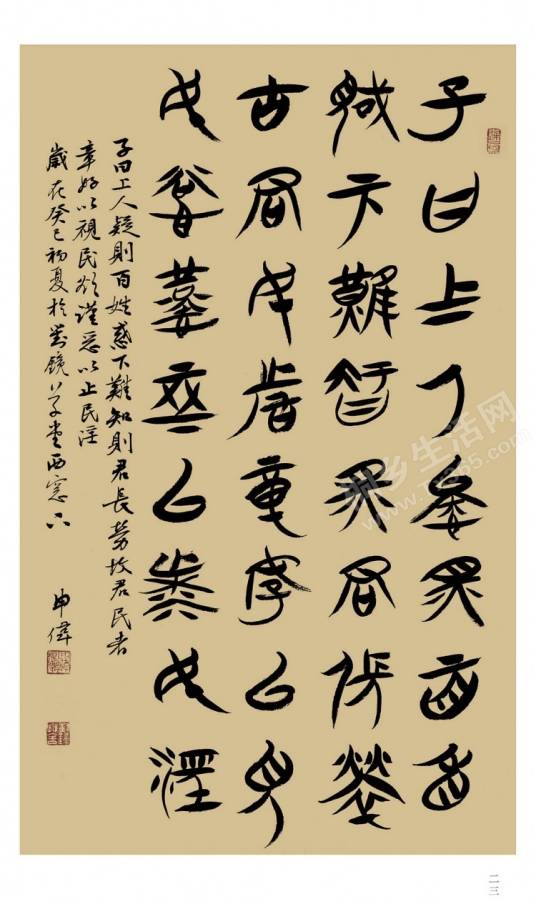 子曰上人疑則百姓
惑下難知則君長勞
古君民者章好以視
民欲謹惡以民淫
子曰上人疑則百姓惑下難知則君長勞故君民者
章好以視民欲謹惡以止民淫
歲在癸巳初夏於對鏡草堂西窗下
申偉
乡生活网
二三